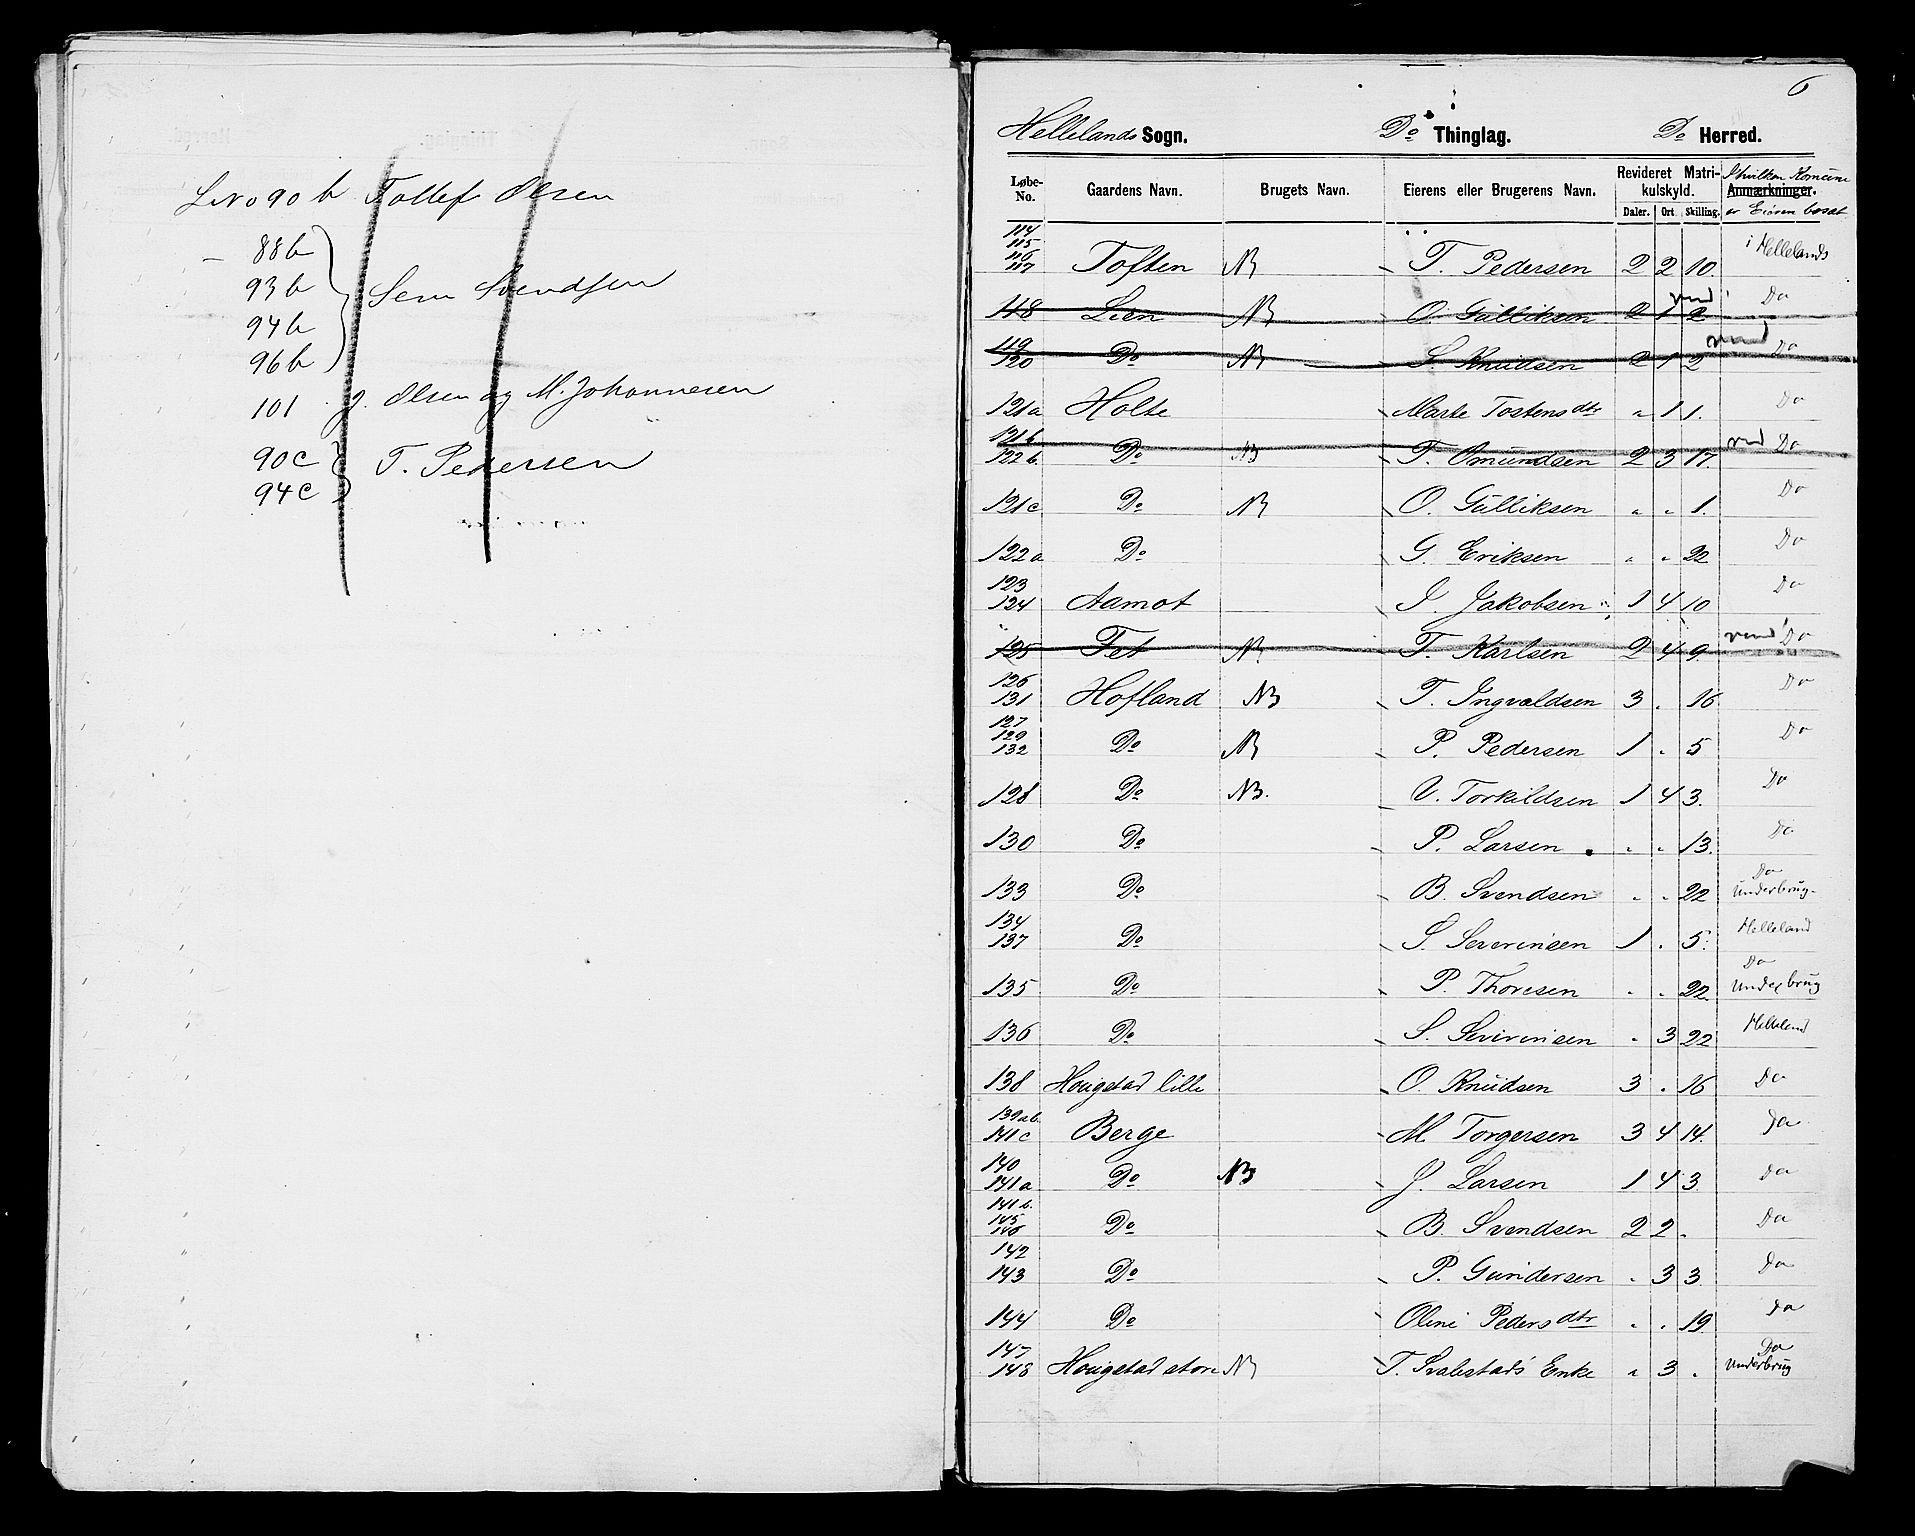 L.No 90 b Tollef Olsen
– 88b
93 b Sem Svendsen
94b
96b
101 J. Olsen og M. Johannesen
90c T. Pedersen
94c
6
Hellelands Sogn. Do Thinglag. Do Herred.
Løbe-No. Gaardens Navn. Brugets Navn. Eierens eller Brugerens Navn. Revideret Matrikulskyld. Daler. Ort. Skilling. I hvilken Komune Anmærkninger. er Eieren bosat
114 115 116 117 Toften NB T. Pedersen 2 2 10 i Hellelands
118 Lien NB O. Gulliksen 2 1 2 vend! Do
119 120 Do NB S. Knudsen 2 1 2 vend Do
121a Holte Marte Tostensdtr " 1 1. Do
121b 122b. Do NB T. Omundsen 2 3 17. vend Do
121c Do NB O. Gulliksen " " 1. Do
122a Do G. Eriksen " " 22 Do
123 124 Aamot I. Jakobsen 1 4 10 Do
125 Fet NB T. Karlsen 2 4 9. vend! Do
126 131 Hofland NB T. Ingvaldsen 3 . 16 Do
127 129 132 Do NB P. Pedersen 1 . 5 Do
128 Do NB. V. Torkildsen 1 4 3. Do
130 Do P. Larsen " " 13. Do
133 Do B. Svendsen " " 22 Do Underbrug
134 137 Do S. Severinsen 1 . 5. Helleland
135 Do P. Thoresen " " 22. Do Underbrug
136 Do S. Severinsen " 3 22 Helleland
138 Hougstad lille O. Knudsen 3 . 16 Do
139ab. 141c Berge M Torgersen 3 4 14. Do
140 141a Do NB J. Larsen 1 4 3. Do
141b. 145 146 Do B. Svendsen 2 2 . Do
142 143 Do P. Gundersen " 3 3. Do
144 Do Oline Pedersdtr " " 19. Do
147 148 Hougstad store NB T. Svalestads Enke " 3 . Do Underbrug